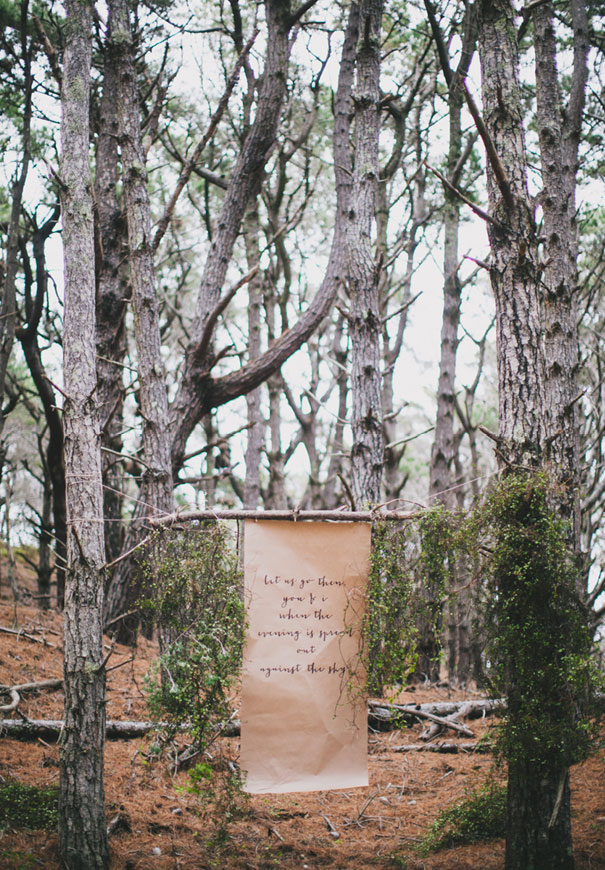 Let us go then,
you & i
when the
evening is spread
out
against the sky